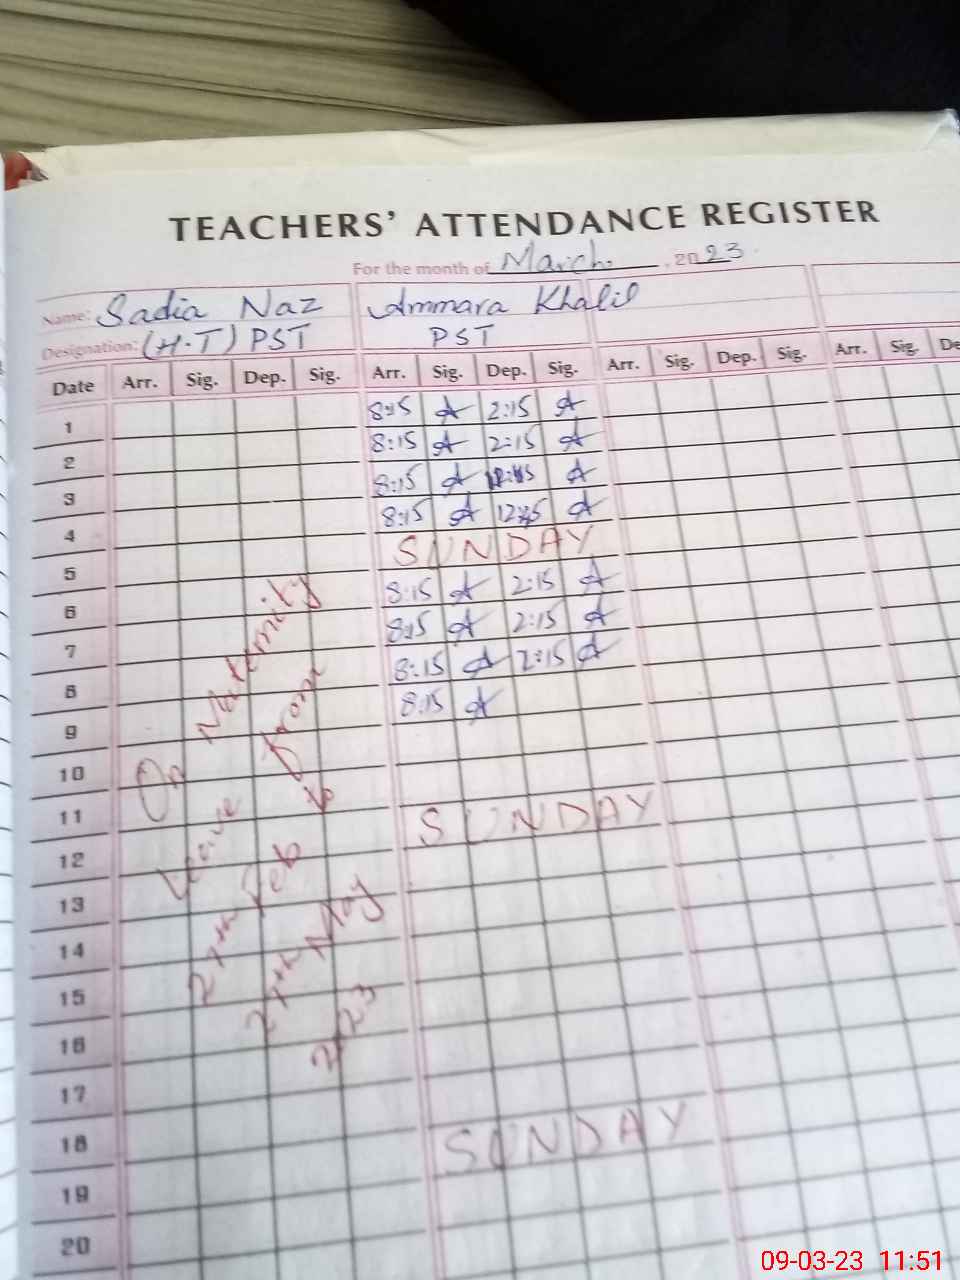 TEACHERS' ATTENDANCE REGISTER
For the month of March, 2023
Name: Sadia Naz Ammara Khalil
Designation: (H.T) PST PST
Date Arr. Sig. Dep. Sig. Arr. Sig. Dep. Sig. Arr. Sig. Dep. Sig. Arr. Sig. De
1 8:15 A 2:15 A
2 8:15 A 2:15 A
3 8:15 A A
4 8:15 A 12:45 A
5 SUNDAY
6 8:15 A 2:15 A
7 8:15 A 2:15 A
8 8:15 A 2:15 A
9 8:15 A
10
11
12 SUNDAY
13
14
15
16
17
18
19 SUNDAY
20
On Maternity
Leave from
27th Feb to
27th May
2023
09-03-23 11:51